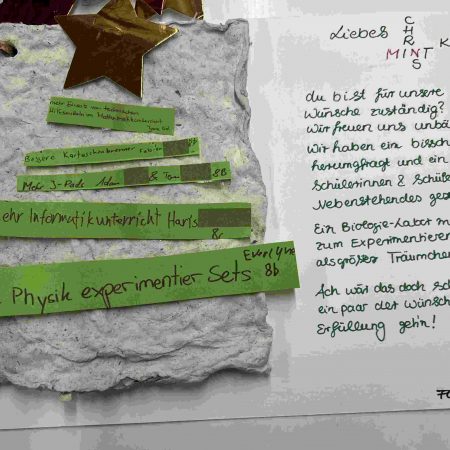 mehr Einsatz von technischen
Hilfsmitteln im Mathematikunterricht
Bessere Kartoffelkanonen
Mehr I-Pads Adam & Tom 8B
ehr Informatikunterricht Haris
8c
Physik experimentier Sets Evelyne
8b
Liebes CHRINS
MINT K
du bist für unsere
Wünsche zuständig?
Wir freuen uns unbä
Wir haben ein bissch
herumgfragt und ein
Schülerinnen & Schüler
Nebenstehendes ge
Ein Biologie-Labor m
zum Experimentieren
als großes Träumchen
Ach wär das doch sch
ein paar der Wünsch
Erfüllung geh'n!